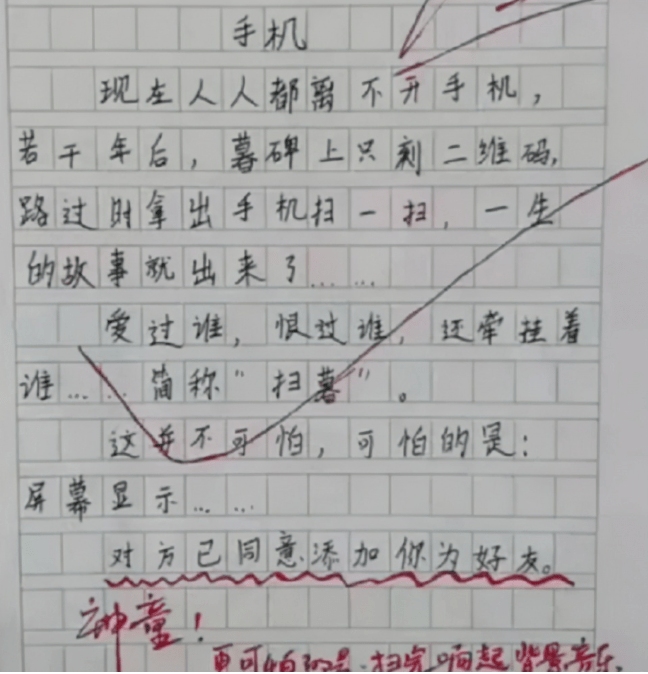 手机
现在人人都离不开手机，
若干年后，暮碑上只刻二维码，
路过时拿出手机扫一扫，一生
的故事就出来了……
爱过谁，恨过谁，还牵挂着
谁……简称"扫暮"。
这并不可怕，可怕的是：
屏幕显示……
对方已同意添加你为好友。
神童！
更可怕的是，扫完响起背景音乐.